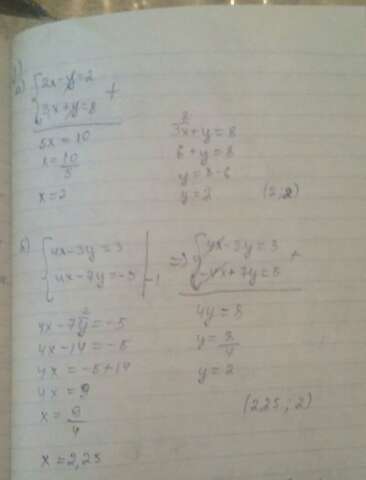 а) { 2x-y=2
3x+y=8 +
5x=10
x=10/5
x=2
2
3x+y=8
6+y=8
y=8-6
y=2 (2;2)
б) { 4x-3y=3
4x-7y=-5 | -1
=> { 4x-3y=3
-4x+7y=5 +
4y=8
y=8/4
y=2
2
4x-7y=-5
4x-14=-5
4x=-5+14
4x=9
x=9/4
x=2,25
(2,25;2)